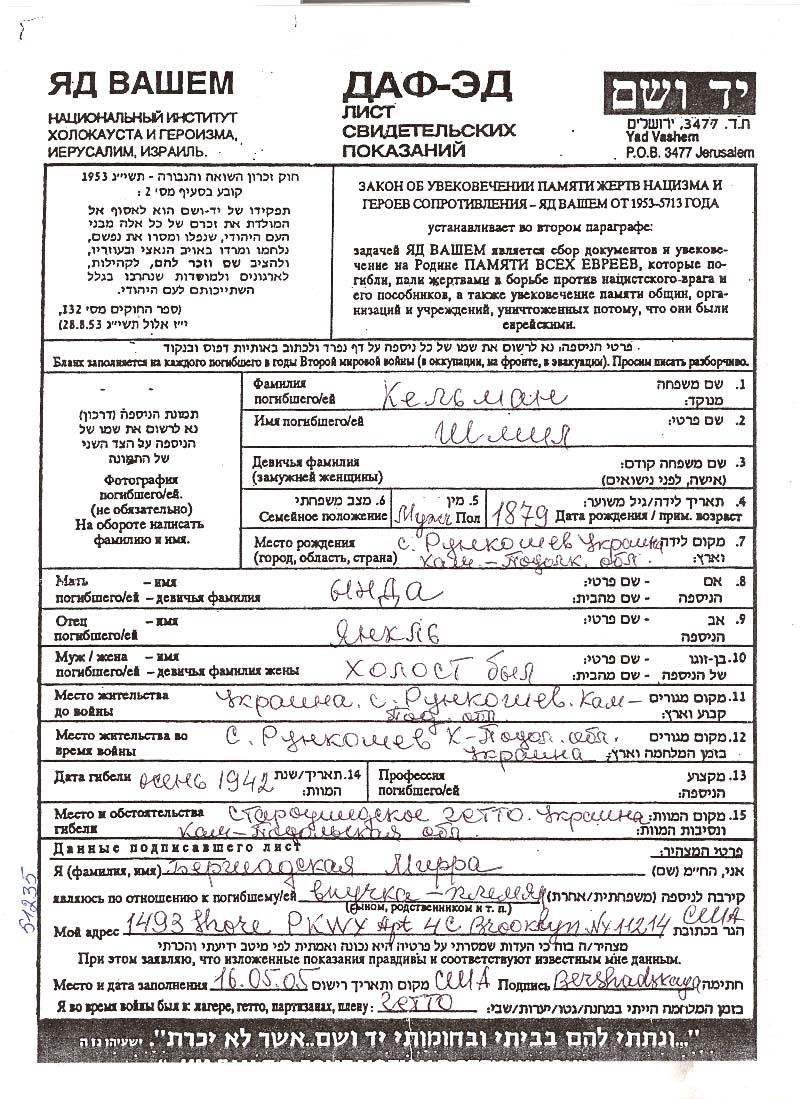 ЯД ВАШЕМ
НАЦИОНАЛЬНЫЙ ИНСТИТУТ
ХОЛОКАУСТА И ГЕРОИЗМА,
ИЕРУСАЛИМ, ИЗРАИЛЬ.
ДАФ-ЭД
ЛИСТ
СВИДЕТЕЛЬСКИХ
ПОКАЗАНИЙ
יד ושם
ת.ד. 3477, ירושלים
Yad Vashem
P.O.B. 3477 Jerusalem
חוק זכרון השואה והגבורה - תשי״ג 1953
קובע בסעיף מס׳ 2 :
תפקידו של יד-ושם הוא לאסוף אל
המולדת את זכרם של כל אלה מבני
העם היהודי, שנפלו ומסרו את נפשם,
נלחמו ומרדו באויב הנאצי ובעוזריו,
ולהציב שם וזכר להם, לקהילות,
לארגונים ולמוסדות שנחרבו בגלל
השתייכותם לעם היהודי.
(ספר החוקים מס׳ 132,
י״ז אלול תשי״ג 28.8.53)
ЗАКОН ОБ УВЕКОВЕЧЕНИИ ПАМЯТИ ЖЕРТВ НАЦИЗМА И
ГЕРОЕВ СОПРОТИВЛЕНИЯ – ЯД ВАШЕМ ОТ 1953–5713 ГОДА
устанавливает во втором параграфе:
задачей ЯД ВАШЕМ является сбор документов и увекове-
чение на Родине ПАМЯТИ ВСЕХ ЕВРЕЕВ, которые по-
гибли, пали жертвами в борьбе против нацистского-врага и
его пособников, а также увековечение памяти общин, орга-
низаций и учреждений, уничтоженных потому, что они были
еврейскими.
פרטי הניספה: נא לרשום את שמו של כל ניספה על דף נפרד ולכתוב באותיות דפוס ובנקוד
Бланк заполняется на каждого погибшего в годы Второй мировой войны (в оккупации, на фронте, в эвакуации). Просим писать разборчиво.
תמונת הניספה (דרכון)
נא לרשום את שמו של
הניספה על הצד השני
של התמונה
Фотография
погибшего/ей.
(не обязательно)
На обороте написать
фамилию и имя.
Фамилия погибшего/ей Кельман 1. שם משפחה מנוקד:
Имя погибшего/ей Шмил 2. שם פרטי:
Девичья фамилия (замужней женщины) 3. שם משפחה קודם: (אישה, לפני נישואים)
Семейное положение 6. מצב משפחתי Муж Пол 5. מין 1879 4. תאריך לידה/גיל משוער: Дата рождения / прим. возраст
Место рождения (город, область, страна) с. Рункошев Украина 7. מקום לידה וארץ:
Кам.-Подолк. обл.
Мать – имя погибшего/ей – девичья фамилия ЫНДА 8. אם - שם פרטי: הניספה - שם מהבית:
Отец – имя погибшего/ей ЯНКЛЬ 9. אב - שם פרטי: הניספה
Муж / жена – имя погибшего/ей – девичья фамилия жены ХОЛОСТ был 10. בן-זוגו - שם פרטי: של הניספה - שם מהבית:
Место жительства до войны Украина. с. Рункошев. Кам- 11. מקום מגורים קבוע וארץ:
Под. обл
Место жительства во время войны С. Рункошев К-Подол. обл. 12. מקום מגורים בזמן המלחמה וארץ:
Украина
Дата гибели осень 1942 14. תאריך/שנת המוות: Профессия погибшего/ей 13. מקצוע הניספה:
Место и обстоятельства гибели Староушицкое гетто. Украина 15. מקום המוות: ונסיבות המוות:
Кам-Подольская обл.
Данные подписавшего лист פרטי המצהיר:
Я (фамилия, имя) Бершадская Мирра אני, הח״מ (שם)
являюсь по отношению к погибшему/ей внучка-племян קירבה לניספה (משפחתית/אחרת)
(сыном, родственником и т. п.)
Мой адрес 1493 Shore PKWY Apt 4C Brooklyn NY 11214 США הגר בכתובת
מצהיר/ה בזה כי העדות שמסרתי על פרטיה היא נכונה ואמתית לפי מיטב ידיעתי והכרתי
При этом заявляю, что изложенные показания правдивы и соответствуют известным мне данным.
Место и дата заполнения 16.05.05 מקום ותאריך רישום США Подпись Bershadskaya חתימה
Я во время войны был в: лагере, гетто, партизанах, плену: гетто בזמן המלחמה הייתי במחנה/גטו/יערות/שבי:
"...ונתתי להם בביתי ובחומותי יד ושם...אשר לא יכרת". ישעיהו נו ה
51235